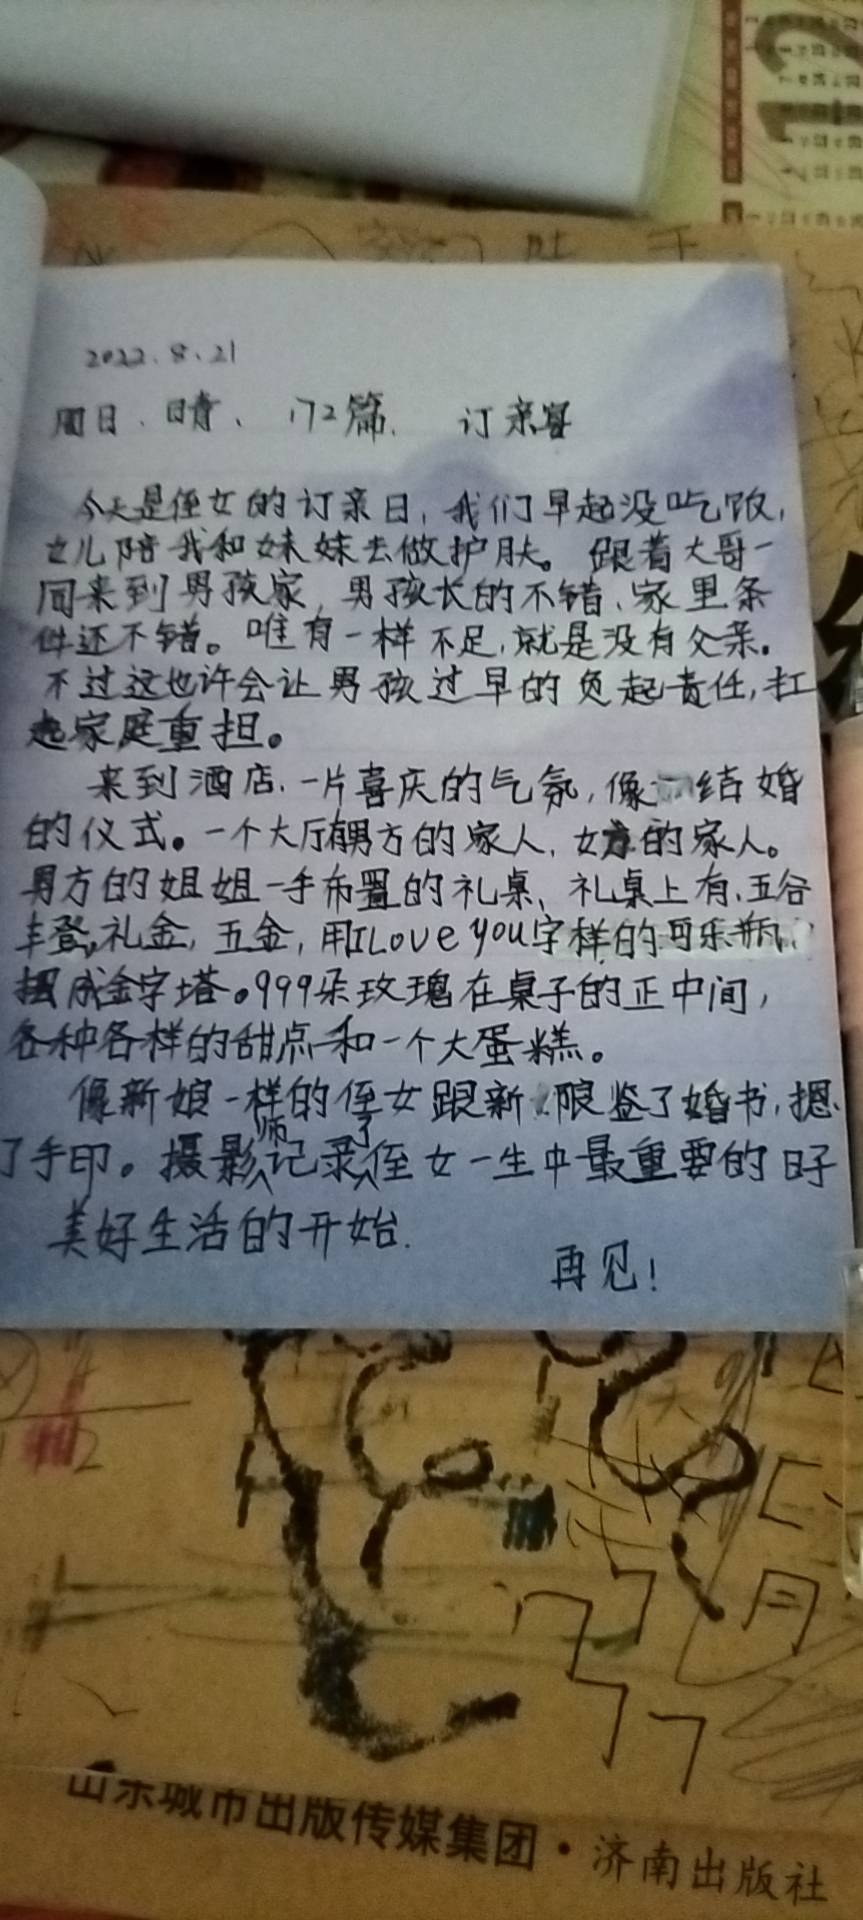 2022.8.21
周日、晴、172篇. 订亲宴
今天是侄女的订亲日,我们早起没吃饭,
女儿陪我和妹妹去做护肤。跟着大哥一
同来到男孩家,男孩长的不错、家里条
件还不错。唯有一样不足,就是没有父亲。
不过这也许会让男孩过早的负起责任,扛
起家庭重担。
来到酒店.一片喜庆的气氛,像 结婚
的仪式。一个大厅有男方的家人,女方的家人。
男方的姐姐一手布置的礼桌、礼桌上有、五谷
丰登,礼金,五金,用I Love you字样的可乐瓶
摆成金字塔。999朵玫瑰在桌子的正中间,
各种各样的甜点和一个大蛋糕。
像新娘一样的侄女跟新 限鉴了婚书,摁
了手印。摄影师记录了侄女一生中最重要的日子
美好生活的开始.
再见!
山东城市出版传媒集团·济南出版社